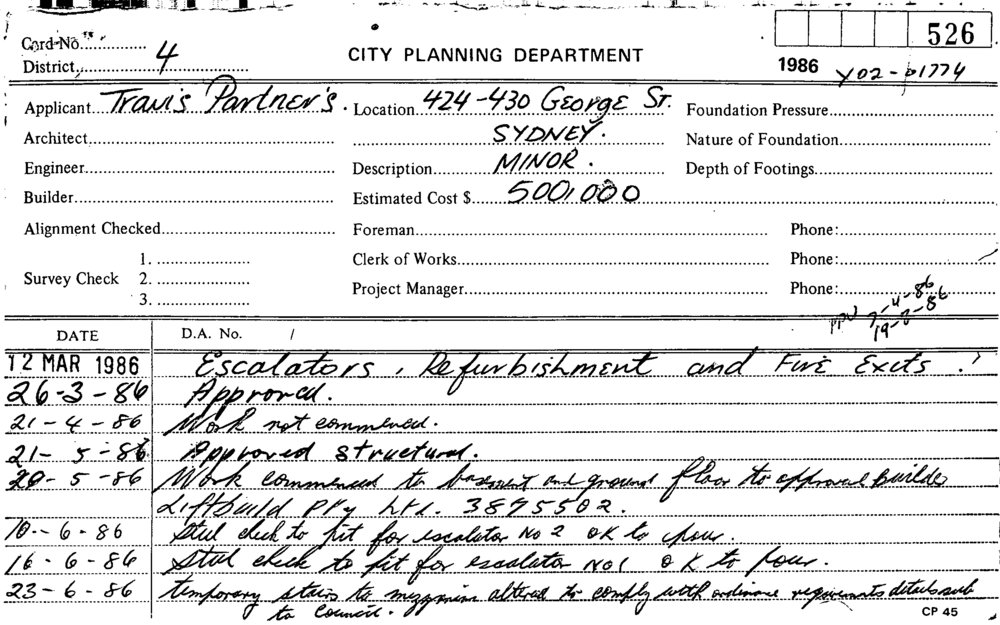 526
Card No.
District 4
CITY PLANNING DEPARTMENT
1986 Y02-01774
Applicant Travis Partner's. Location 424-430 George St. Foundation Pressure
Architect SYDNEY. Nature of Foundation
Engineer Description MINOR. Depth of Footings
Builder Estimated Cost $ 500,000
Alignment Checked Foreman Phone:
1.
Clerk of Works Phone:
Survey Check 2.
3. Project Manager Phone:
7-4-86
86
DATE D.A. No. /
12 MAR 1986 Escalators, Refurbishment and Fire Exits.
26-3-86 Approved.
21-4-86 Work not commenced.
21-5-86 Approved structural.
20-5-86 Work commenced to basement and ground floor to approval builder
Liftbuild Pty Ltd. 3875502.
10-6-86 Steel check to pit for escalator No 2 OK to pour.
16-6-86 Steel check to pit for escalator No 1 OK to pour.
23-6-86 temporary stairs to mezzanine altered to comply with ordinance requirements details sub
to Council.
CP 45